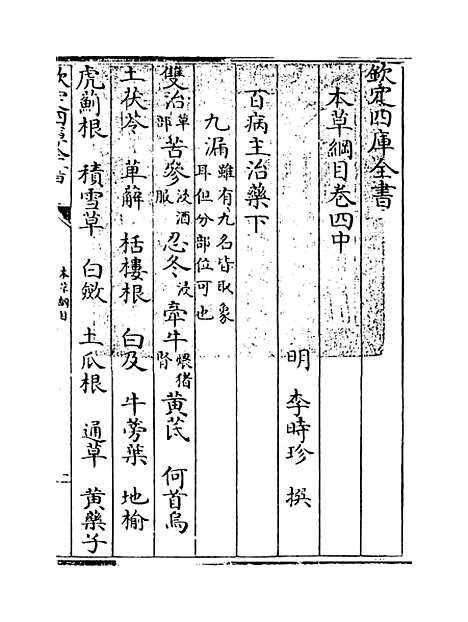 欽定四庫全書
本草綱目卷四中
明 李時珍 撰
百病主治藥下
九漏雖有九名皆取象耳但分部位可也
雙治草部苦參浸酒服忍冬浸牽牛煨猪腎黄芪 何首烏
土茯苓 萆解 栝樓根 白及 牛蒡葉 地榆
虎薊根 積雪草 白斂 土瓜根 通草 黄藥子
欽定四庫全書
本草綱目